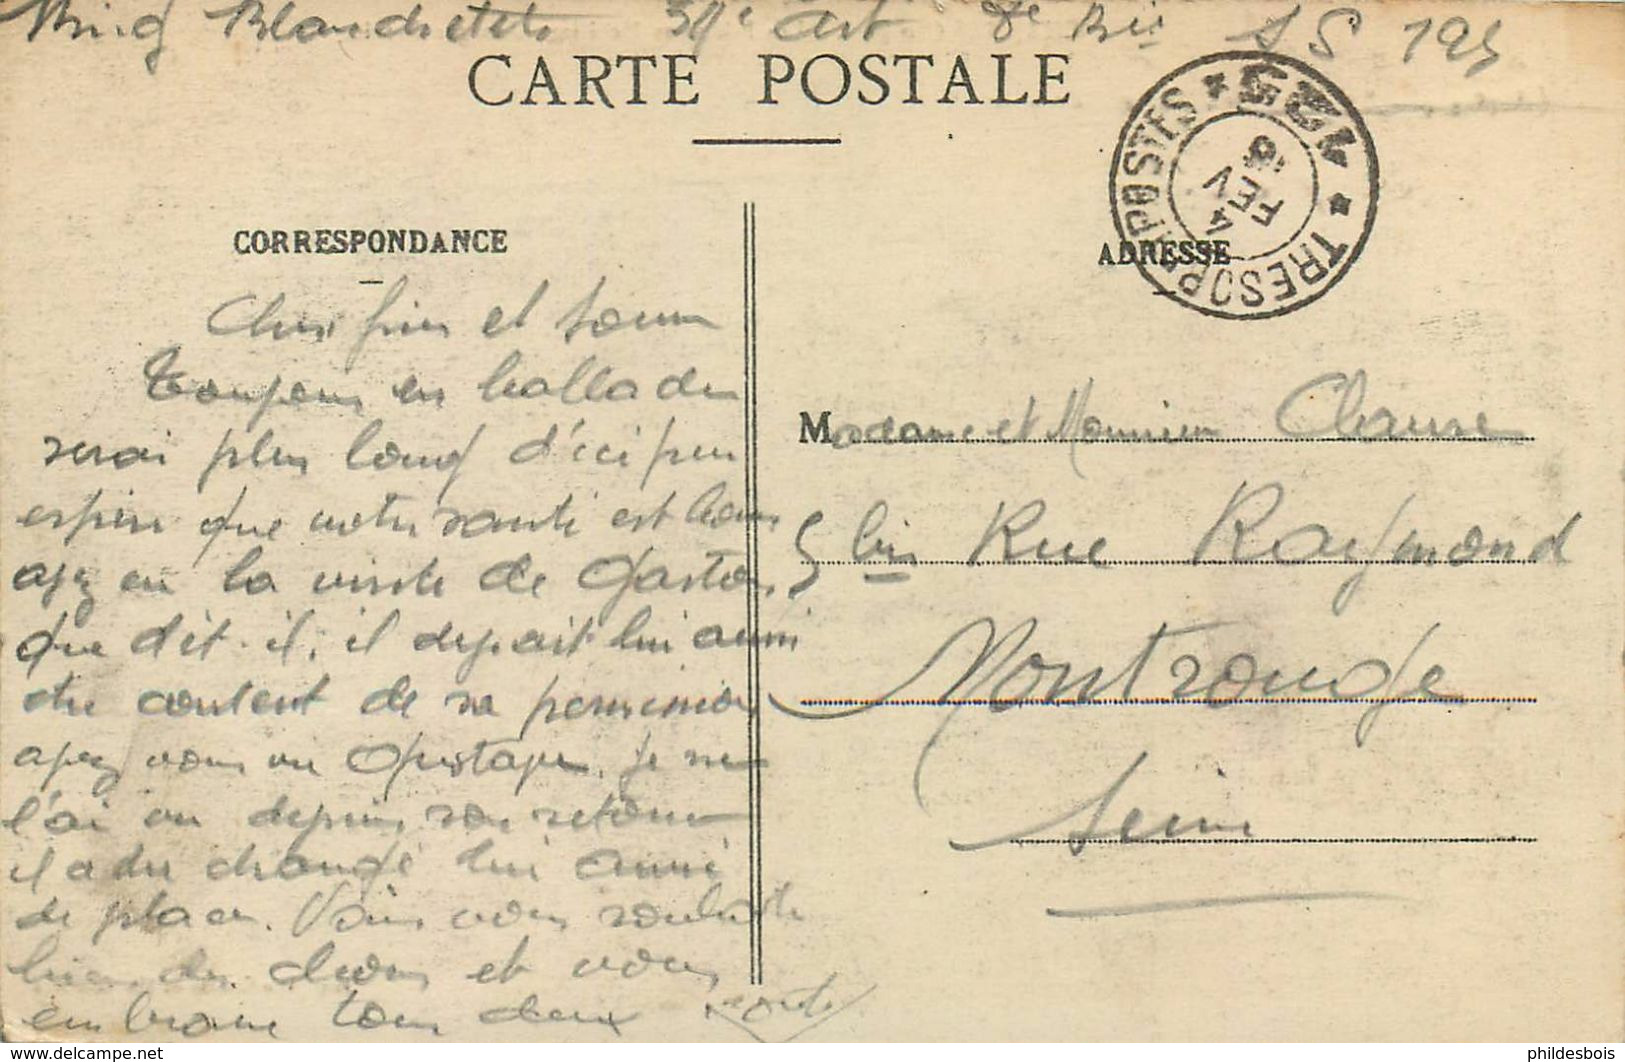 Blanchetete 30e Art 8e Bie S S 125
CARTE POSTALE
TRESOR POSTES * 125 *
4
FEV
18
CORRESPONDANCE
ADRESSE
Chers frere et Soeur
Toujours en ballade
serai plus loud d'ici peu
espere que votre santé est bone
ayez eu la visite de Gaston,
que dit-il, il deyait lui aussi
etre content de sa permission
ayez vous vu Gustave, je ne
l'ai vu depuis son retour
il a du changé lui aussi
de place. Vous souhaite
bien des choses et vous
embrasse tous deux
Madame et Monsieur Clause
5 bis Rue Raymond
Montrouge
Seine
www.delcampe.net
phildesbois